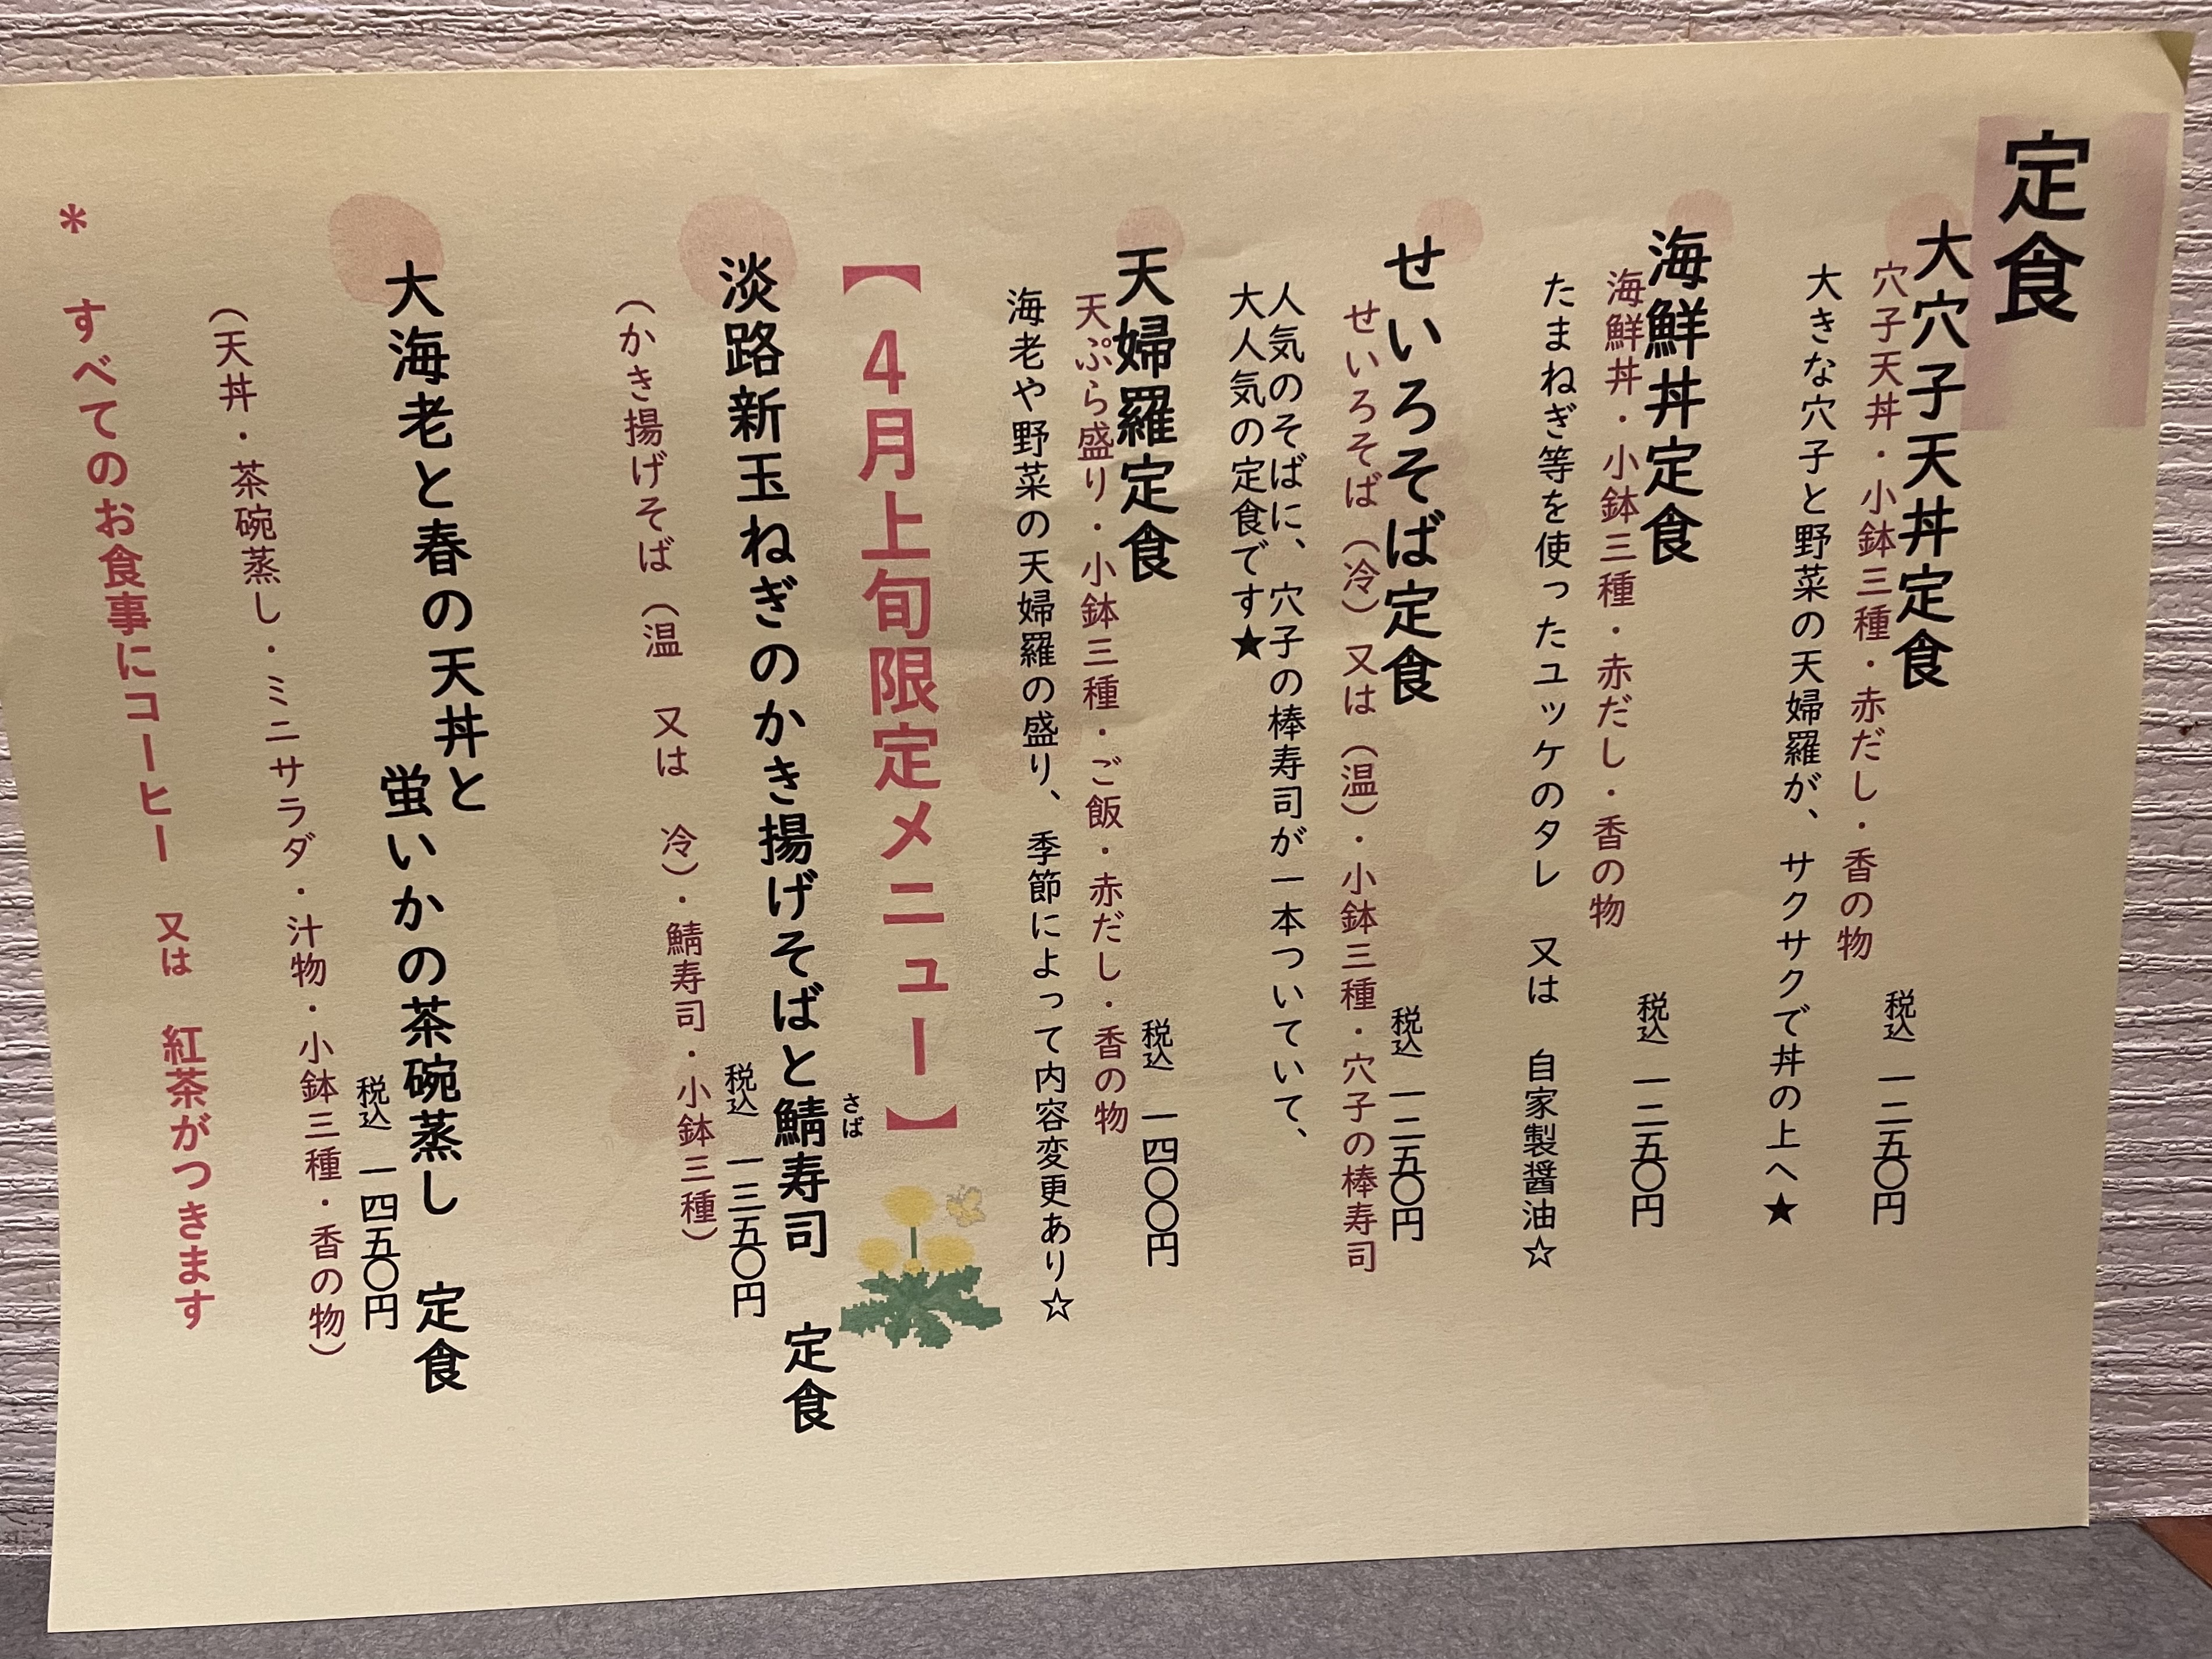 定食
大穴子天丼定食
穴子天丼・小鉢三種・赤だし・香の物
税込 一二五〇円
大きな穴子と野菜の天婦羅が、サクサクで丼の上へ★
海鮮丼定食
海鮮丼・小鉢三種・赤だし・香の物
税込 一二五〇円
たまねぎ等を使ったユッケのタレ 又は 自家製醤油☆
せいろそば定食
税込 一二五〇円
せいろそば（冷）又は（温）・小鉢三種・穴子の棒寿司
人気のそばに、穴子の棒寿司が一本ついていて、
大人気の定食です★
天婦羅定食
税込 一四〇〇円
天ぷら盛り・小鉢三種・ご飯・赤だし・香の物
海老や野菜の天婦羅の盛り、季節によって内容変更あり☆
【4月上旬限定メニュー】
さば
淡路新玉ねぎのかき揚げそばと鯖寿司 定食
税込 一三五〇円
（かき揚げそば（温 又は 冷）・鯖寿司・小鉢三種）
大海老と春の天丼と
蛍いかの茶碗蒸し 定食
税込 一四五〇円
（天丼・茶碗蒸し・ミニサラダ・汁物・小鉢三種・香の物）
* すべてのお食事にコーヒー 又は 紅茶がつきます